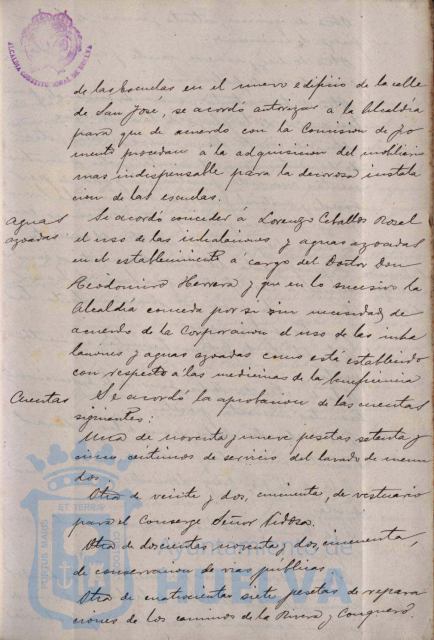 ALCALDIA CONSTITUCIONAL DE HUELVA
de las Escuelas en el nuevo edificio de la calle
de San José, se acordó autorizar á la Alcaldía
para que de acuerdo con la Comision de Fo
mento procedan á la adquisicion del mobiliario
mas indispensable para la decorosa instala
cion de las escuelas.
Aguas
azoadas
Se acordó conceder á Lorenzo Ceballos Rosel
el uso de las inhalaciones y aguas azoadas
en el establecimiento á cargo del Doctor Don
Teodomiro Herrera y que en lo sucesivo la
Alcaldía conceda por si sin necesidad de
acuerdo de la Corporacion el uso de las inha
laciones y aguas azoadas como está establecido
con respecto á las medicinas de la beneficencia
Cuentas
Se acordó la aprobacion de las cuentas
siguientes:
Una de noventa y nueve pesetas setenta y
cinco centimos de servicio del lavado de menu
dos.
Otra de veinte y dos, cincuenta, de vestuario
para el Conserge Señor
Otra de doscientas noventa y dos, cincuenta,
de conservacion de vias públicas
Otra de cuatrocientas siete pesetas de repara
ciones de los caminos de la Rivera y Conquero.
PORTUS MARIS
ET TERRAE
CUSTODIA
Ayuntamiento de
HUELVA